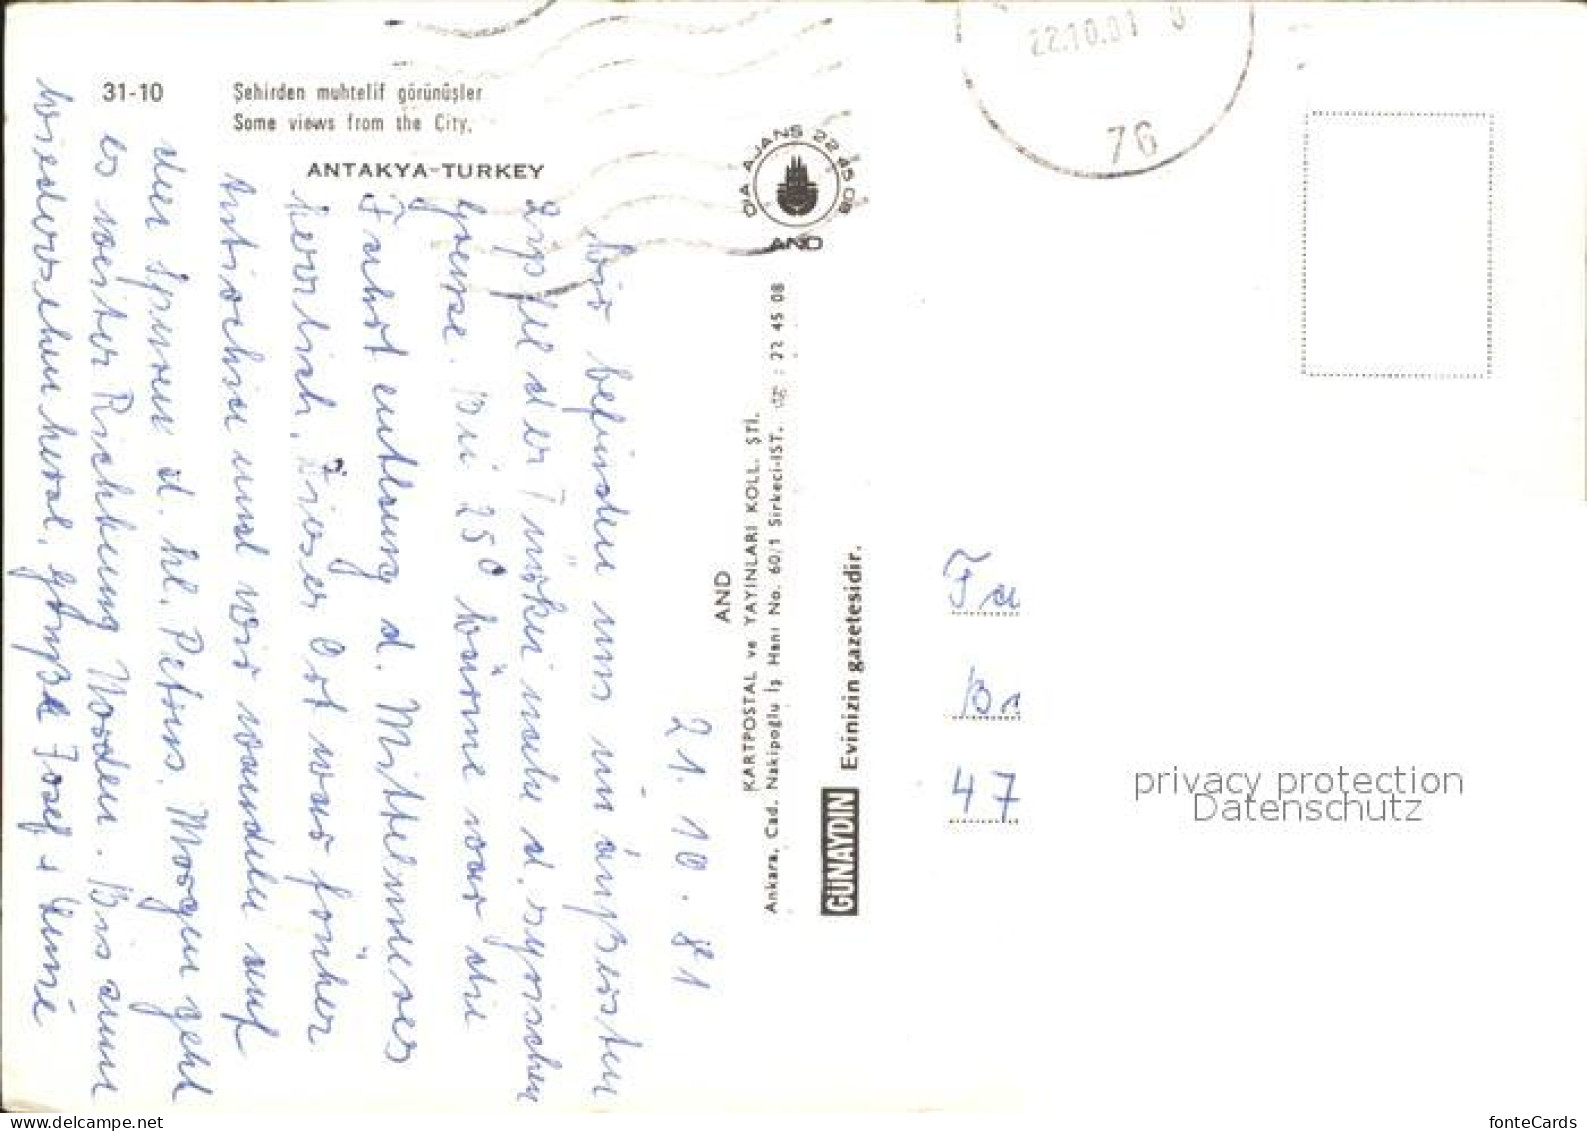 31-10
Şehirden muhtelif görünüşler
Some views from the City.
ANTAKYA-TURKEY
21. 10. 81
Wir befinden uns im äußersten
Zipfel der Türkei nahe d. syrischen
Grenze. Bei 25° Wärme war die
Fahrt entlang d. Mittelmeeres
herrlich. Dieser Ort war früher
Antiochia und wir wandeln auf
den Spuren d. hl. Petrus. Morgen geht
es weiter Richtung Norden. Bis zum
Wiedersehen herzl. Grüße Josef +
OIA AJANS 22 45 08
AND
AND
KARTPOSTAL ve YAYINLARI KOLL. ŞTİ.
Ankara, Cad. Nakipoğlu İş Hanı No. 60/1 Sirkeci-İST. : 22 45 08
GÜNAYDIN Evinizin gazetesidir.
22.10.81
76
47
privacy protection
Datenschutz
fonteCards